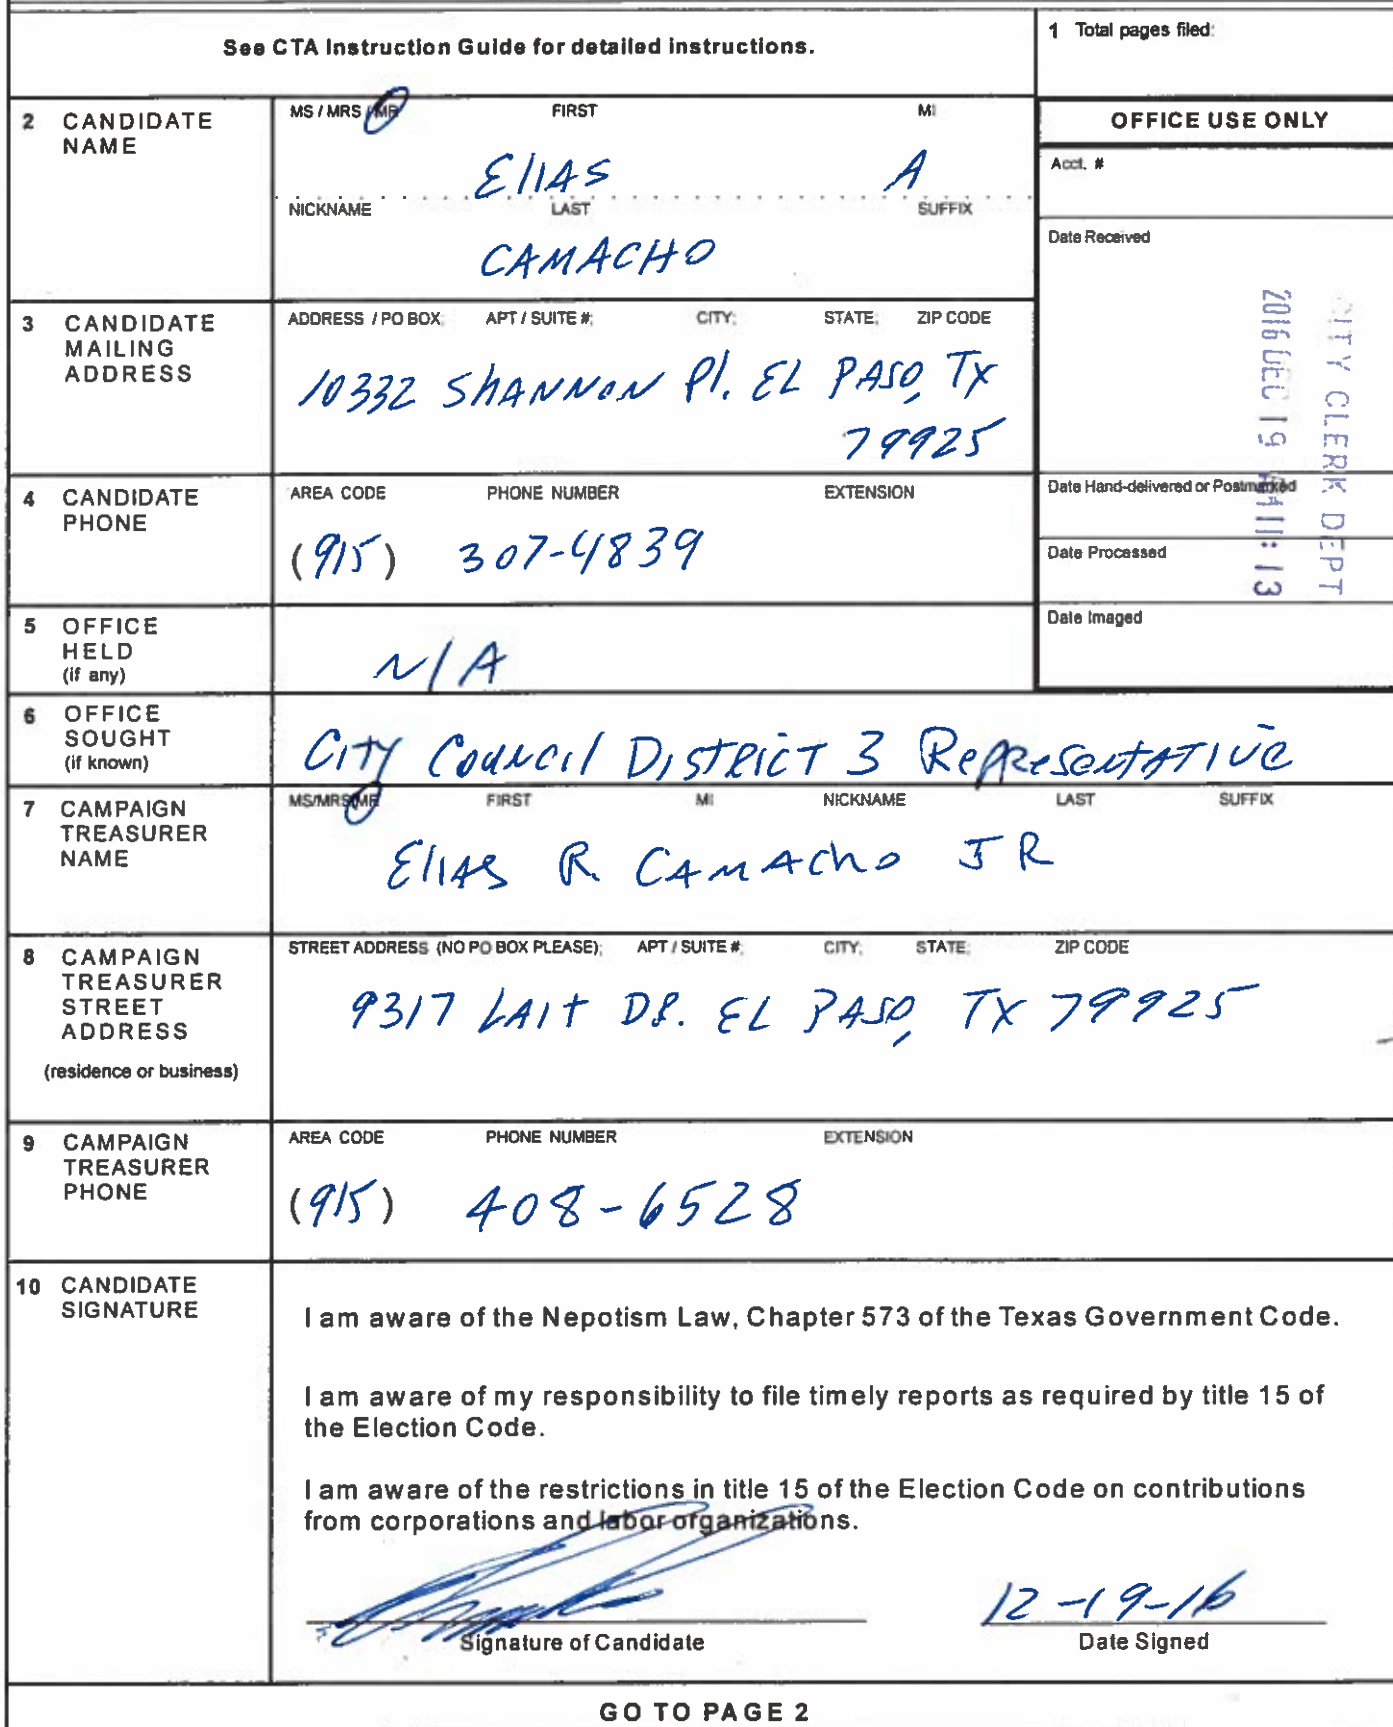 See CTA Instruction Guide for detailed instructions.
1 Total pages filed:
2 CANDIDATE NAME
MS / MRS / MR FIRST MI
Elias A
NICKNAME LAST SUFFIX
CAMACHO
OFFICE USE ONLY
Acct. #
Date Received
CITY CLERK DEPT
2016 DEC 19 AM 11:13
Date Hand-delivered or Postmarked
Date Processed
Date Imaged
3 CANDIDATE MAILING ADDRESS
ADDRESS / PO BOX; APT / SUITE #; CITY; STATE; ZIP CODE
10332 SHANNON Pl. EL PASO, TX
79925
4 CANDIDATE PHONE
AREA CODE PHONE NUMBER EXTENSION
(915) 307-4839
5 OFFICE HELD (if any)
N/A
6 OFFICE SOUGHT (if known)
City Council District 3 Representative
7 CAMPAIGN TREASURER NAME
MS/MRS/MR FIRST MI NICKNAME LAST SUFFIX
Elias R. CAMACho JR
8 CAMPAIGN TREASURER STREET ADDRESS
(residence or business)
STREET ADDRESS (NO PO BOX PLEASE); APT / SUITE #; CITY; STATE; ZIP CODE
9317 LAIT DR. EL PASO, TX 79925
9 CAMPAIGN TREASURER PHONE
AREA CODE PHONE NUMBER EXTENSION
(915) 408-6528
10 CANDIDATE SIGNATURE
I am aware of the Nepotism Law, Chapter 573 of the Texas Government Code.
I am aware of my responsibility to file timely reports as required by title 15 of
the Election Code.
I am aware of the restrictions in title 15 of the Election Code on contributions
from corporations and labor organizations.
12-19-16
Signature of Candidate Date Signed
GO TO PAGE 2